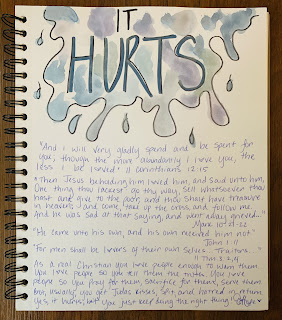 IT
HURTS
"And I will very gladly spend and be spent for
you, though the more abundantly I love you, the
less I be loved" II Corinthians 12:15
"Then Jesus beholding him loved him, and said unto him,
One thing thou lackest: go thy way, sell whatsoever thou
hast and give to the poor and thou shalt have treasure
in heaven, and come, take up the cross, and follow me.
And he was sad at that saying, and went away grieved..."
Mark 10:21-22
"He came unto his own, and his own received him not."
John 1:11
"For men shall be lovers of their own selves... Traitors..."
II Tim 3:2,4
As a real Christian you love people enough to warn them
You love people so you tell them the truth. You love
people so you pray for them, sacrifice for them, serve them
but, usually, you get Judas kisses, spit, and hatred in return
Yes, it hurts, but you just keep doing the right thing.